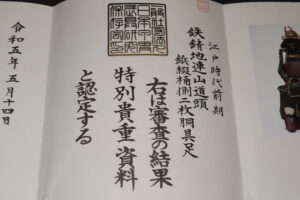 江戸時代前期
鉄錆地連山道頭
鋲綴桶側二枚胴具足
右は審査の結果
特別貴重資料
と認定する
令和五年五月十四日